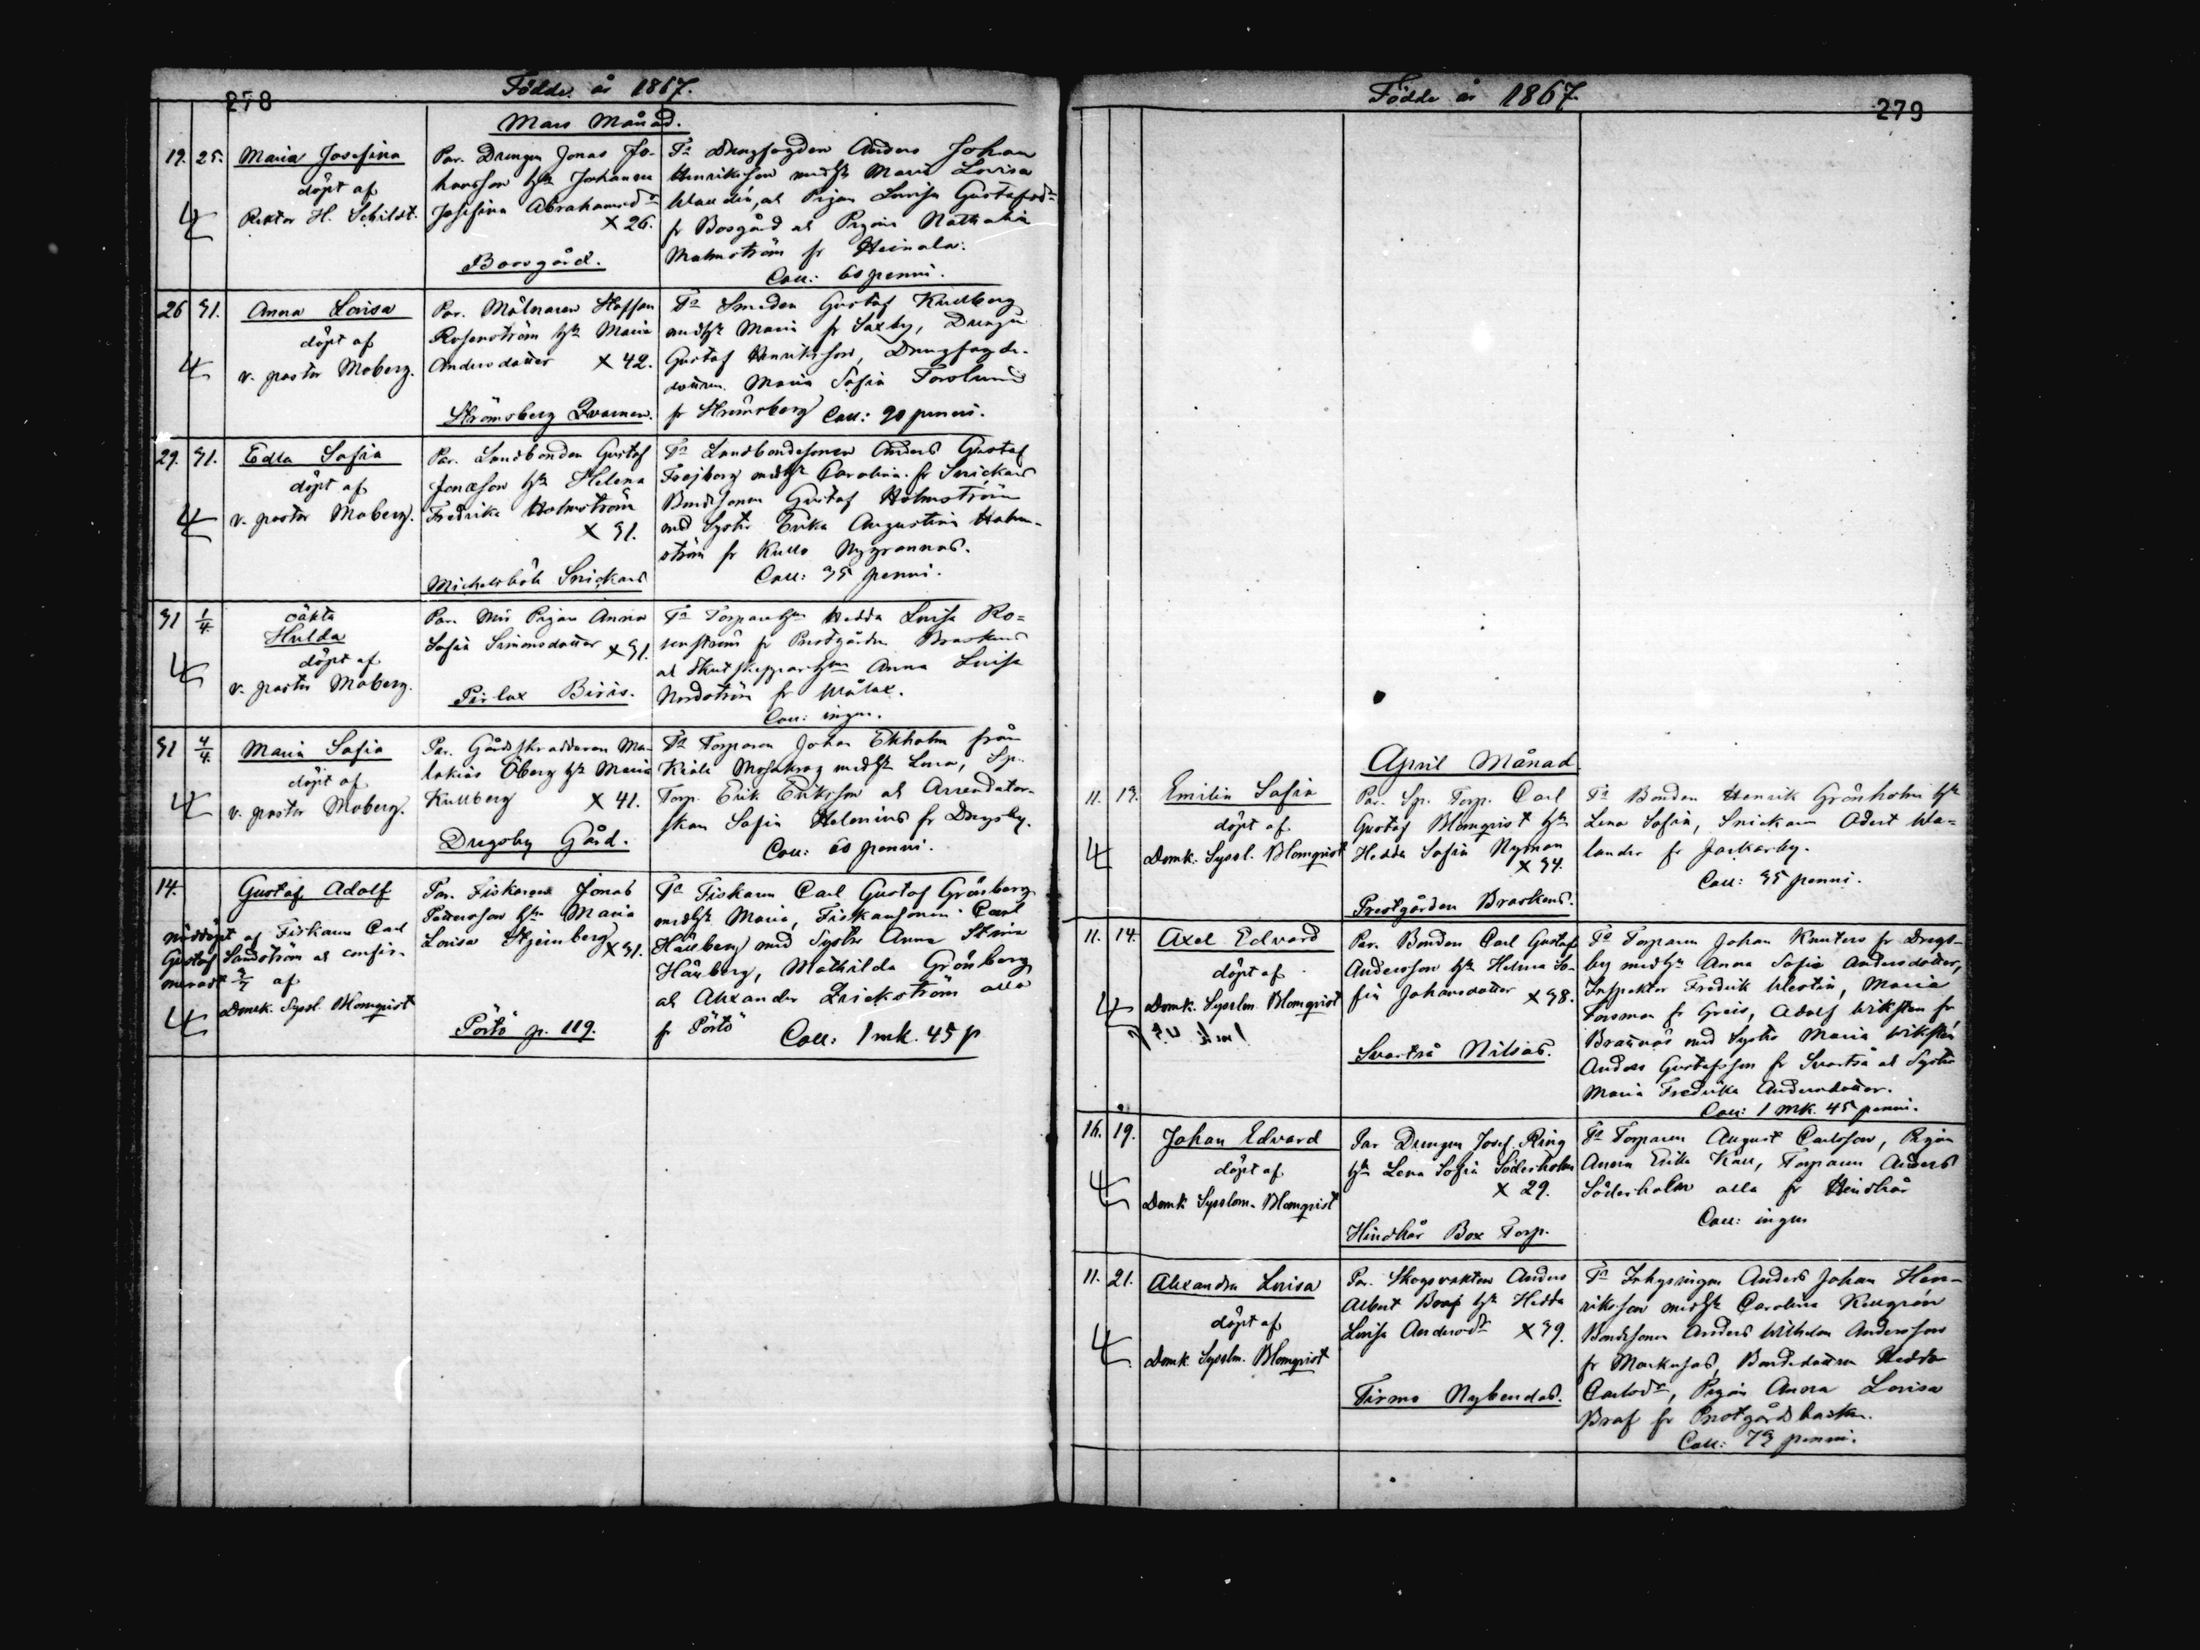 278
Födde år 1867.
Mars Månad.
19. 25.
Maria Josefina
döpt af
Rektor H. Schildt.
Par. Drengen Jonas Jo-
hansson hst Johanna
Josefina Abrahamsdr
X 26.
Bosgård.
Ts Drengfogden Anders Johan
Henriksson medh Maria Lovisa
Wallén, ah Pigan Lovisa Gustafsdr
fr Bosgård ah Pigan Nathalia
Malmström fr Heinola.
Coll: 60 penni.
26 31.
Anna Lovisa
döpt af
v. pastor Moberg.
Par. Mölnaren Staffan
Rosenström hst Maria
Andersdotter X 42.
Strömsberg Qvarnen.
Ts Smeden Gustaf Kullberg
medh Maria fr Saxby, Drengen
Gustaf Henriksson, Drengfogde-
dottren Maria Sofia Forslund
fr Strömsberg Coll: 90 penni.
29. 31.
Edla Sofia
döpt af
v. pastor Moberg.
Par. Landbonden Gustaf
Jonasson hst Helena
Fredrika Holmström
X 31.
Michelsböle Snickars
Ts Landbondesonen Anders Gustaf
Frejborg medh Carolina fr Snickars
Bondesonen Gustaf Holmström
med Syster Erika Augustina Holm-
ström fr Kullo Nygrannas.
Coll: 35 penni.
31 1/4.
oäkta
Hulda
döpt af
v. pastor Moberg.
Par. Mör Pigan Anna
Sofia Simonsdotter X 31.
Pirlax Biris.
Ts Torparehn Hedda Lovisa Ro=
senström fr Prostgården Braskens
ah Skutskepparehn Anna Lovisa
Nordström fr Wålax.
Coll: ingen.
31 4/4.
Maria Sofia
döpt af
v. pastor Moberg.
Par. Gårdsskräddaren Ma-
lakias Öberg hst Maria
Kullberg X 41.
Drägsby Gård.
Ts Torparen Johan Ekholm från
Kiala Mosakrog medh Lena, Sp.
Torp. Erik Eriksson ah Arrendator-
skan Sofia Helenius fr Drägsby.
Coll: 60 penni.
14.
Gustaf Adolf
nöddöpt af Fiskaren Carl
Gustaf Sandström ah confir-
meradt 2/7 af
Domk. Syssl. Blomqvist
Par. Fiskaren Jonas
Pettersson hst Maria
Lovisa Stjernberg X 31.
Pörtö p. 119.
Ts Fiskaren Carl Gustaf Grönberg
medh Maria, Fiskaresonen Carl
Hallberg med Syster Anna Stina
Hallberg, Mathilda Grönberg
ah Alexander Qvickström alla
fr Pörtö Coll: 1 mk. 45 p
Födde år 1867.
279
April Månad.
11. 13.
Emilia Sofia
döpt af
Domk. Syssl. Blomqvist
Par. Sp. Torp. Carl
Gustaf Blomqvist hst
Hedda Sofia Nyman
X 34.
Prestgården Braskens.
Ts Bonden Henrik Grönholm hst
Lena Sofia, Snickaren Adert Wa=
lander fr Jackarby.
Coll: 35 penni.
11. 14.
Axel Edvard
döpt af
Domk. Sysslm. Blomqvist
Par. Bonden Carl Gustaf
Andersson hst Helena So-
fia Johansdotter X 38.
Svartså Nilsas.
Ts Torparen Johan Knuters fr Drägs-
by medhn Anna Sofia Andersdotter,
Inspektor Fredrik Westin, Maria
Forsman fr Greis, Adolf Wiksten fr
Brattnäs med Syster Maria Wiksten
Anders Gustafsson fr Svartså ah Syster
Maria Fredrika Andersdotter.
Coll: 1 mk. 45 penni.
16. 19.
Johan Edvard
döpt af
Domk. Sysslom. Blomqvist
Par Drengen Josef Ring
hst Lena Sofia Söderholm
X 29.
Hindhår Box Torp.
Ts Torparen August Carlsson, Pigan
Anna Erika Kall, Torparen Anders
Söderholm alla fr Hindhår
Coll: ingen
11. 21.
Alexandra Lovisa
döpt af
Domk. Sysslm. Blomqvist
Par. Skogsvakten Anders
Albert Braf hst Hedda
Lovisa Andersdr X 39.
Tirmo Nybondas.
Ts Inhysingen Anders Johan Hen-
riksson medh Carolina Kullgrén
Bondesonen Anders Wilhelm Andersson
fr Markusas, Bondedottren Hedda
Carlsdr, Pigan Anna Lovisa
Braf fr Prostgårdsbacken.
Coll: 73 penni.